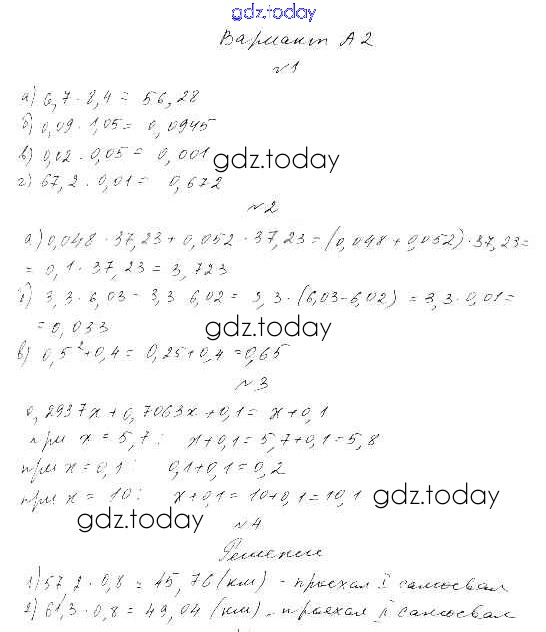 gdz.today
Вариант А2
№1
а) 6,7 · 8,4 = 56,28
б) 0,09 · 1,05 = 0,0945
в) 0,02 · 0,05 = 0,001
gdz.today
г) 67,2 · 0,01 = 0,672
№2
а) 0,048 · 37,23 + 0,052 · 37,23 = (0,048 + 0,052) · 37,23 =
= 0,1 · 37,23 = 3,723
б) 3,3 · 6,03 - 3,3 · 6,02 = 3,3 · (6,03 - 6,02) = 3,3 · 0,01 =
= 0,033
gdz.today
в) 0,5² + 0,4 = 0,25 + 0,4 = 0,65
№3
0,2937x + 0,7063x + 0,1 = x + 0,1
при x = 5,7: x + 0,1 = 5,7 + 0,1 = 5,8
при x = 0,1: 0,1 + 0,1 = 0,2
при x = 10: x + 0,1 = 10 + 0,1 = 10,1
gdz.today
gdz.today
№4
Решение
1) 57,2 · 0,8 = 45,76 (км) - проехал I самосвал
2) 61,3 · 0,8 = 49,04 (км) - проехал II самосвал